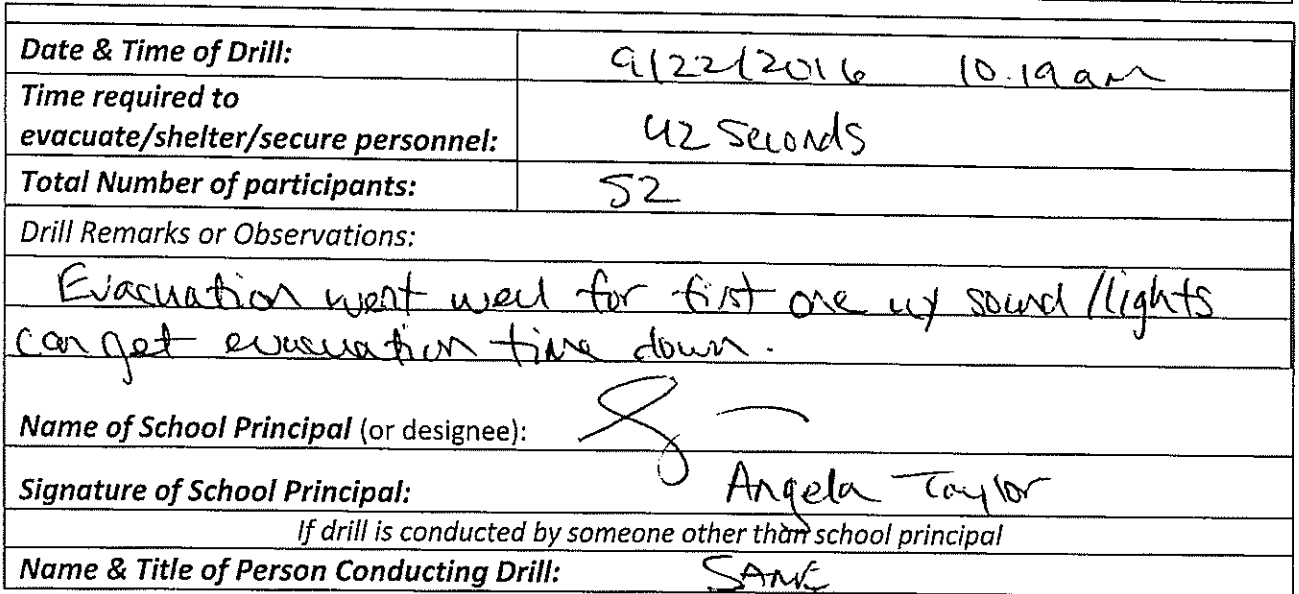 Date & Time of Drill: 9/22/2016 10.19am
Time required to
evacuate/shelter/secure personnel: 42 Seconds
Total Number of participants: 52
Drill Remarks or Observations:
Evacuation went well for first one w/ sound /lights
can get evacuation time down.
Name of School Principal (or designee):
Signature of School Principal: Angela Taylor
If drill is conducted by someone other than school principal
Name & Title of Person Conducting Drill: SAME